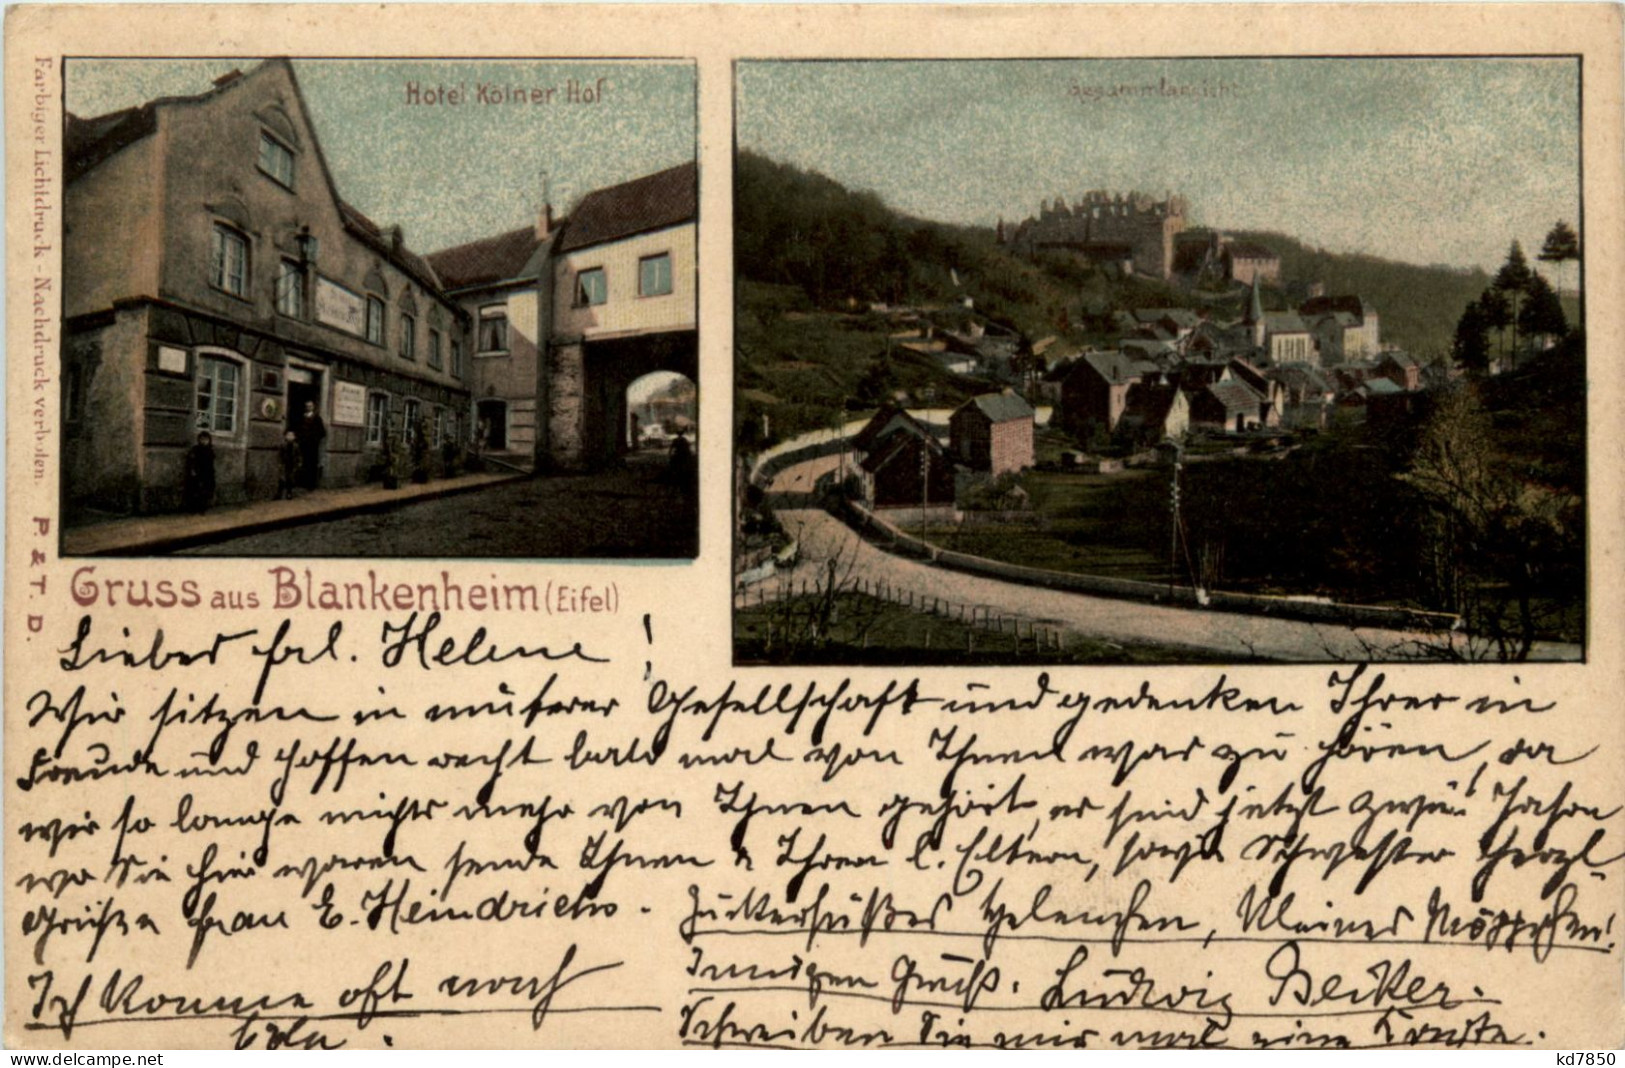 Hotel Kölner Hof
Gesammtansicht
Farbiger Lichtdruck - Nachdruck verboten. P. & T. D.
Gruss aus Blankenheim (Eifel)
Liebes Frl. Helene!
Wir sitzen in unserer Gesellschaft und gedenken Ihrer in
Freude und hoffen recht bald mal von Ihnen was zu hören, da
wir so lange nichts mehr von Ihnen gehört, es sind jetzt zwei Jahre
wo Sie hier waren sende Ihnen & Ihren l. Eltern, sowie Schwester herzl.
Grüße Frau E. Heindrichs.
Zuckersüßes Helenchen, Kleines Möppchen!
Innigen Gruß. Ludwig Becker.
Schreiben Sie mir mal eine Karte.
Ich komme oft nach
Cöln.
kd7850